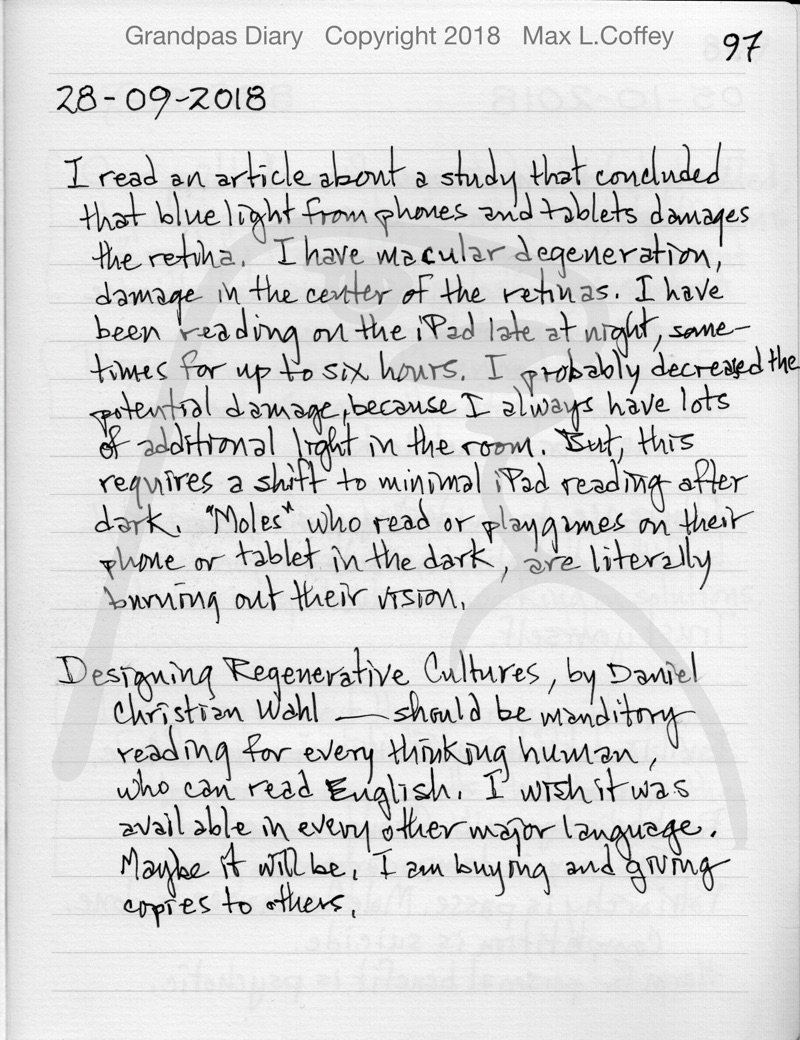 Grandpas Diary Copyright 2018 Max L.Coffey
97
28-09-2018
I read an article about a study that concluded
that blue light from phones and tablets damages
the retina. I have macular degeneration,
damage in the center of the retinas. I have
been reading on the iPad late at night, some-
times for up to six hours. I probably decreased the
potential damage, because I always have lots
of additional light in the room. But, this
requires a shift to minimal iPad reading after
dark. "Moles" who read or play games on their
phone or tablet in the dark, are literally
burning out their vision.
Designing Regenerative Cultures, by Daniel
Christian Wahl — should be manditory
reading for every thinking human,
who can read English. I wish it was
available in every other major language.
Maybe it will be. I am buying and giving
copies to others.